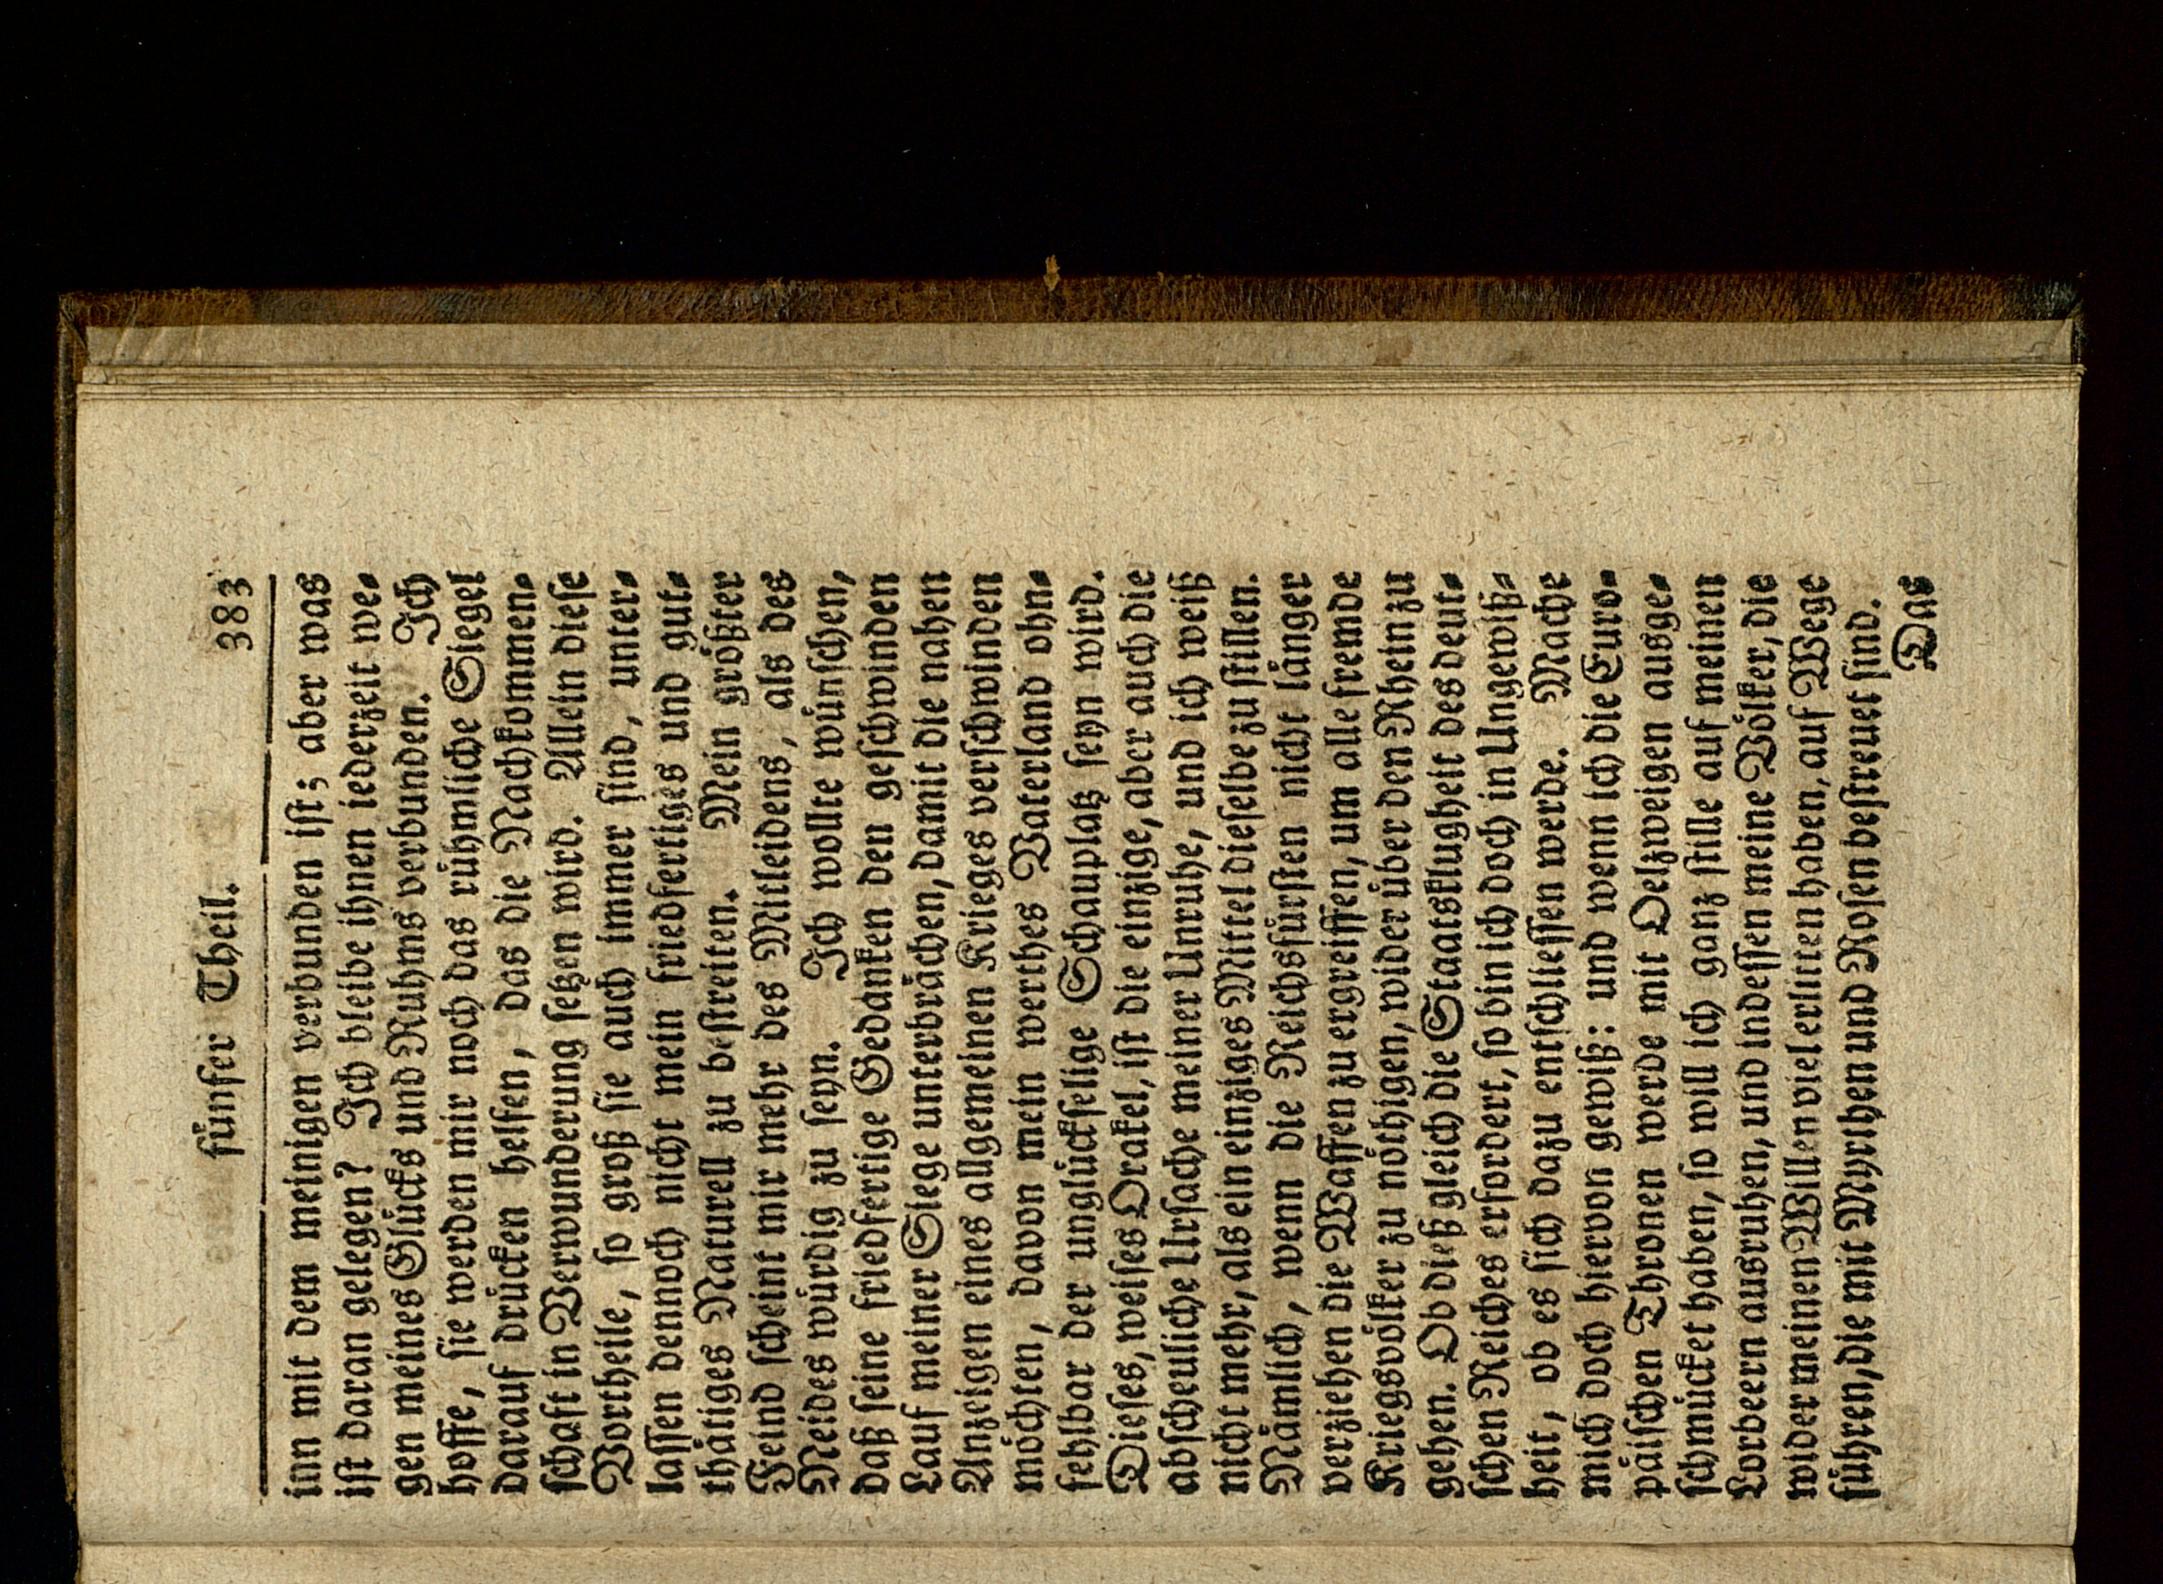 fünfer Theil. 383
inn mit dem meinigen verbunden iſt; aber was
iſt daran gelegen? Ich bleibe ihnen iederzeit we-
gen meines Glücks und Ruhms verbunden. Ich
hoffe, ſie werden mir noch das rühmliche Siegel
darauf drücken helfen, das die Nachkommen-
ſchaft in Verwunderung ſetzen wird. Allein dieſe
Vortheile, ſo groß ſie auch immer ſind, unter-
laſſen dennoch nicht mein friedfertiges und gut-
thätiges Naturell zu beſtreiten. Mein größter
Feind ſcheint mir mehr des Mitleidens, als des
Neides würdig zu ſeyn. Ich wollte wünſchen,
daß ſeine friedfertige Gedanken den geſchwinden
Lauf meiner Siege unterbrächen, damit die nahen
Anzeigen eines allgemeinen Krieges verſchwinden
möchten, davon mein werthes Vaterland ohn-
fehlbar der unglückſelige Schauplatz ſeyn wird.
Dieſes, weiſes Orakel, iſt die einzige, aber auch die
abſcheuliche Urſache meiner Unruhe, und ich weiß
nicht mehr, als ein einziges Mittel dieſelbe zu ſtillen.
Nämlich, wenn die Reichsfürſten nicht länger
verziehen die Waffen zu ergreiffen, um alle fremde
Kriegsvölker zu nöthigen, wider über den Rhein zu
gehen. Ob dieß gleich die Staatsklugheit des deut-
ſchen Reiches erfordert, ſo bin ich doch in Ungewiß-
heit, ob es ſich dazu entſchlieſſen werde. Mache
mich doch hiervon gewiß: und wenn ich die Euro-
päiſchen Thronen werde mit Oelzweigen ausge-
ſchmücket haben, ſo will ich ganz ſtille auf meinen
Lorbeern ausruhen, und indeſſen meine Völker, die
wider meinen Willen viel erlitten haben, auf Wege
führen, die mit Myrthen und Roſen beſtreuet ſind.
Das